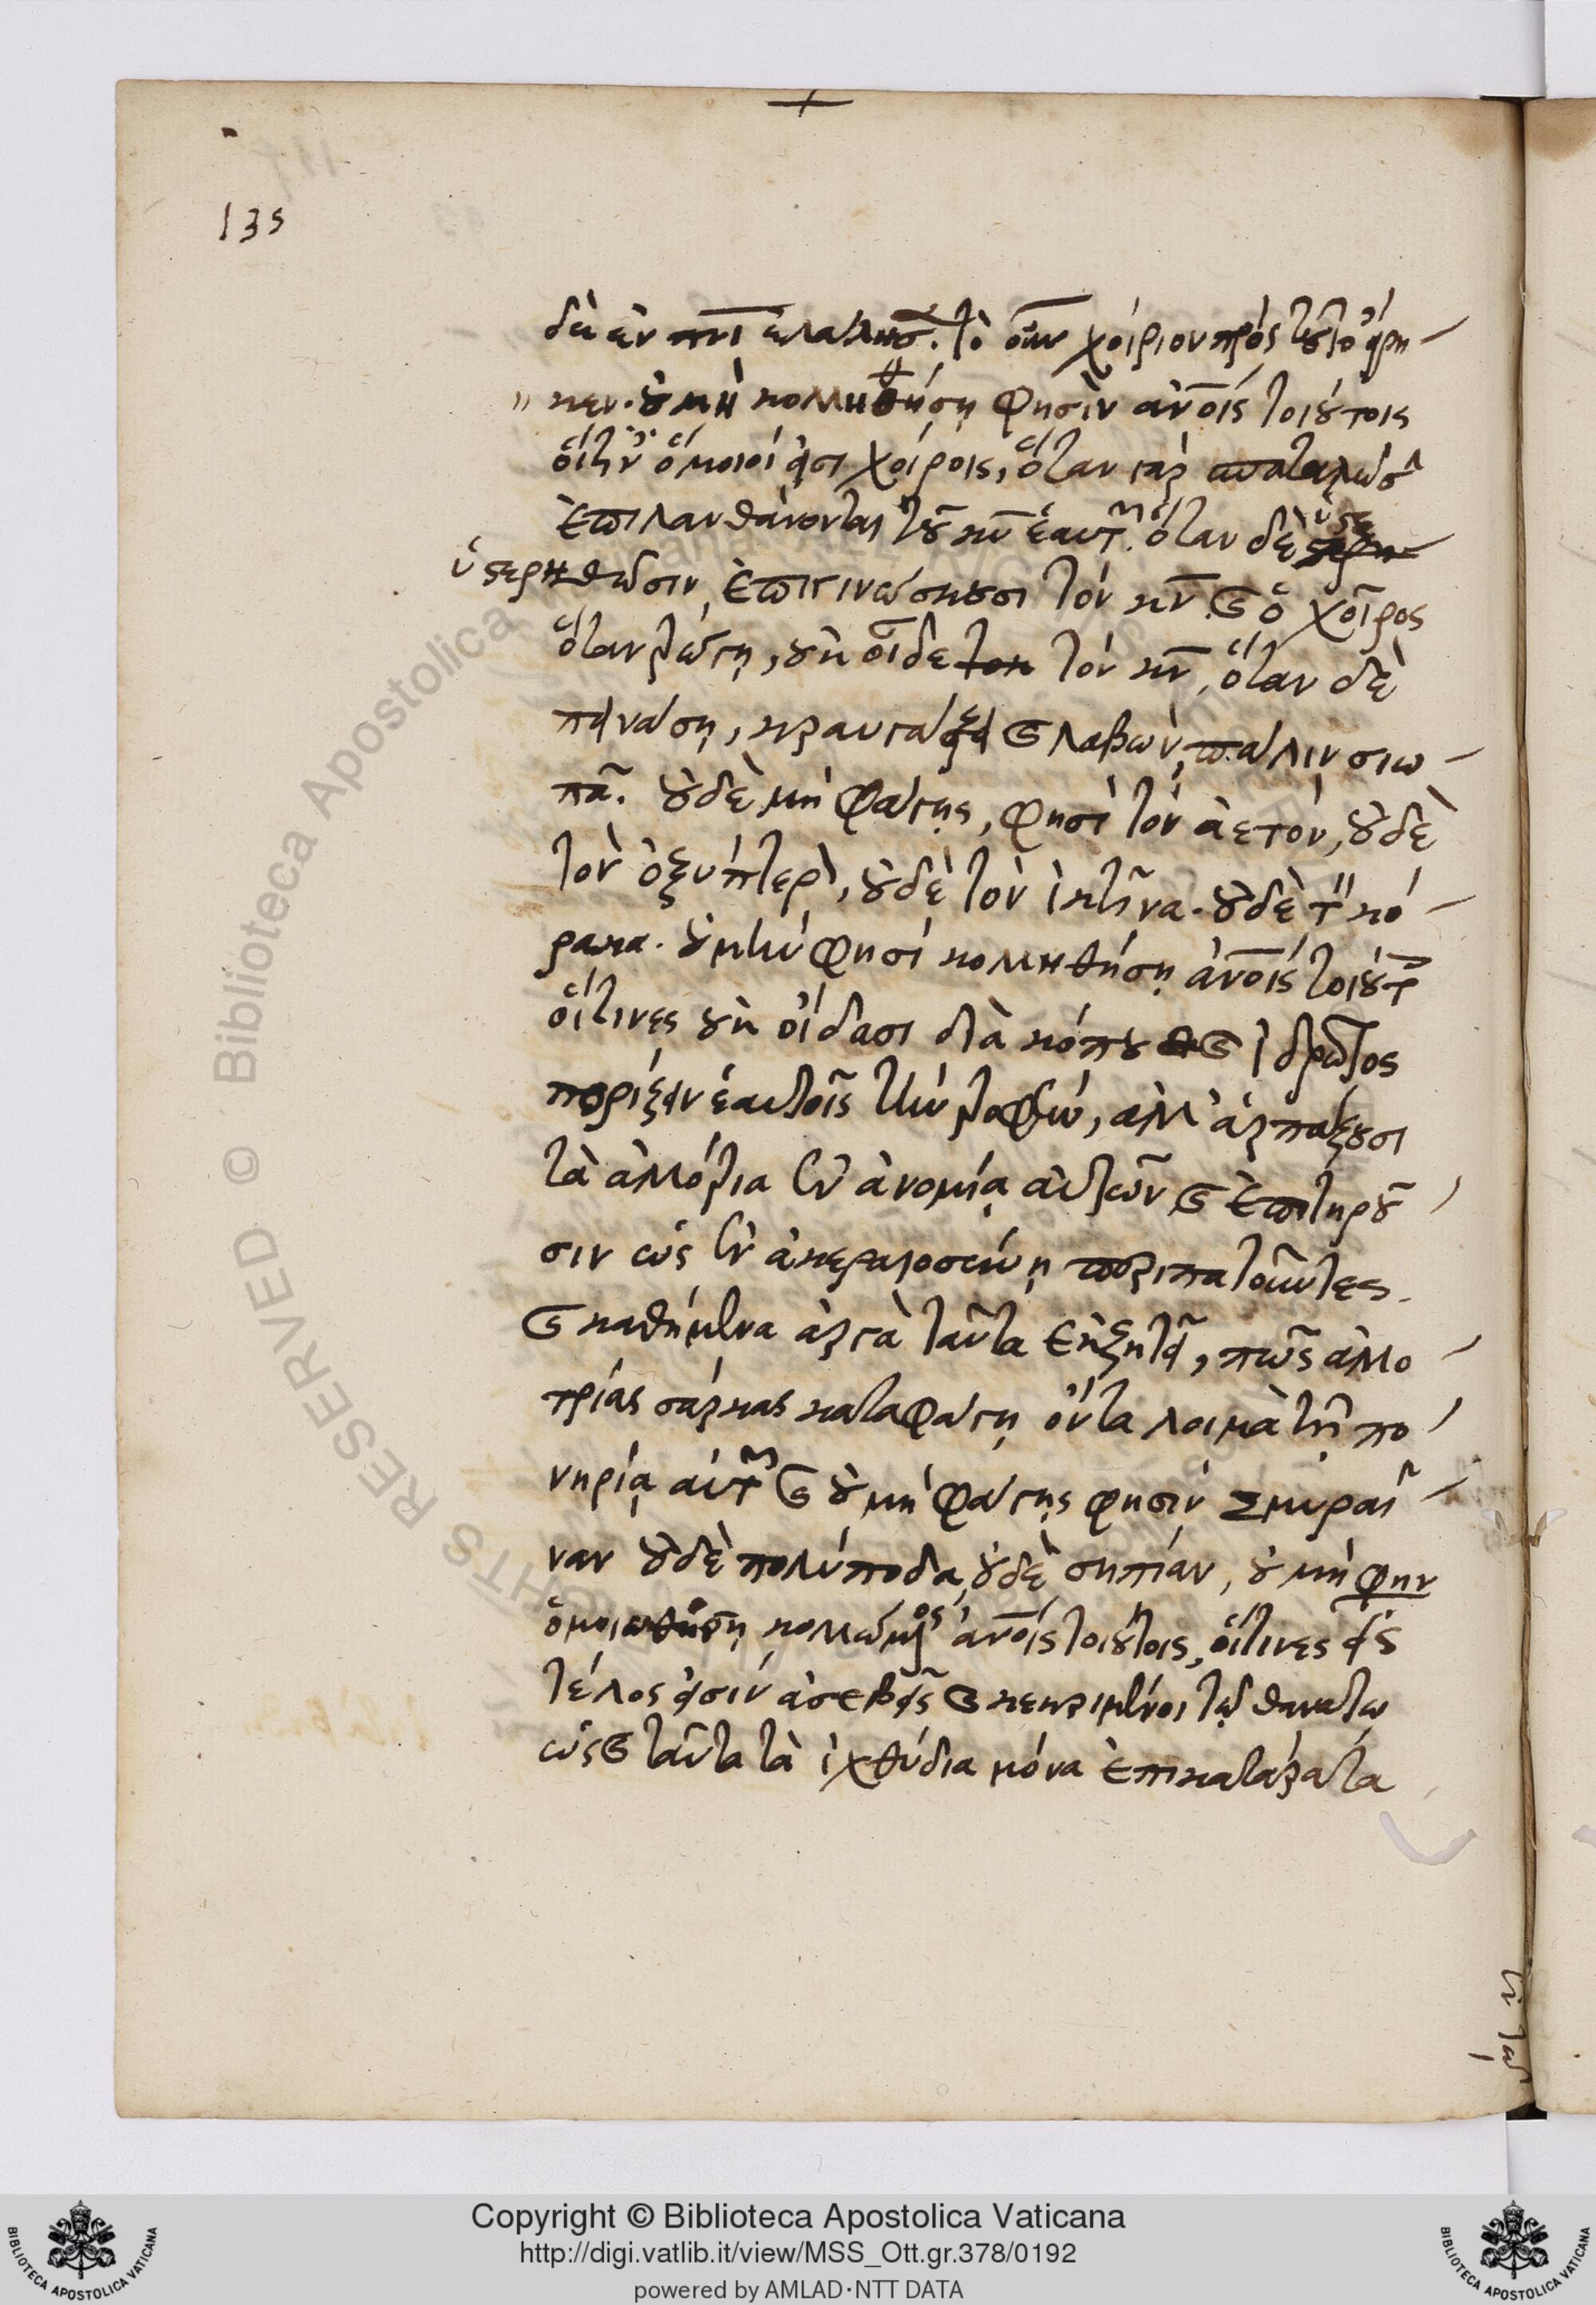 135
δὲ ἐν πνι ἐλάλησ. τὸ οὖν χοίριον πρὸς τοῦτο εἴρη
κεν. οὐ μὴ κολληθήσῃ φησὶν ἀνοις τοιούτοις
οἵτιν ὅμοιοί εἰσι χοίροις, ὅταν γὰρ σπαταλῶσ
ἐπιλανθάνονται τοῦ κυ ἑαυτ. ὅταν δὲ ὑστε
ὑστερηθῶσιν, ἐπιγινώσκουσι τὸν κν καὶ ὁ χοῖρος
ὅταν τρώγῃ, οὐκ οἶδε τὸν κν, ὅταν δὲ
πεινάσῃ, κραυγάζει καὶ λαβὼν πάλιν σιω
πᾶ. οὐδὲ μὴ φάγῃς, φησὶ τὸν ἀετὸν, οὐδὲ
τὸν ὀξύπτερ, οὐδὲ τὸν ἰκτῖνα. οὐδὲ τ κό
ρακα. οὐ μὴν φησὶ κολληθήσῃ ἀνοις τοιούτ
οἵτινες οὐκ οἴδασι διὰ κόπου καὶ ἱδρῶτος
πορίζειν ἑαυτοῖς τὴν τροφὴν, ἀλλ' ἁρπάζουσι
τὰ ἀλλότρια ἐν ἀνομίᾳ αὐτῶν καὶ ἐπιτηροῦ
σιν ὡς ἐν ἀκεραιοσύνῃ περιπατοῦντες.
καὶ καθήμενα ἀργὰ ταῦτα ἐκζητεῖ, πῶς ἀλλο
τρίας σάρκας καταφάγῃ ὄντα λοιμὰ τῇ πο
νηρίᾳ αὐτ καὶ οὐ μὴ φάγῃς φησὶν σμύραι
ναν οὐδὲ πολύποδα, οὐδὲ σηπίαν, οὐ μὴ φην
ὁμοιωθήσῃ κολλώμενος ἀνοις τοιούτοις, οἵτινες εἰς
τέλος εἰσὶν ἀσεβεῖς καὶ κεκριμένοι τῷ θανάτω
ὡς καὶ ταῦτα τὰ ἰχθύδια μόνα ἐπικατάρατα